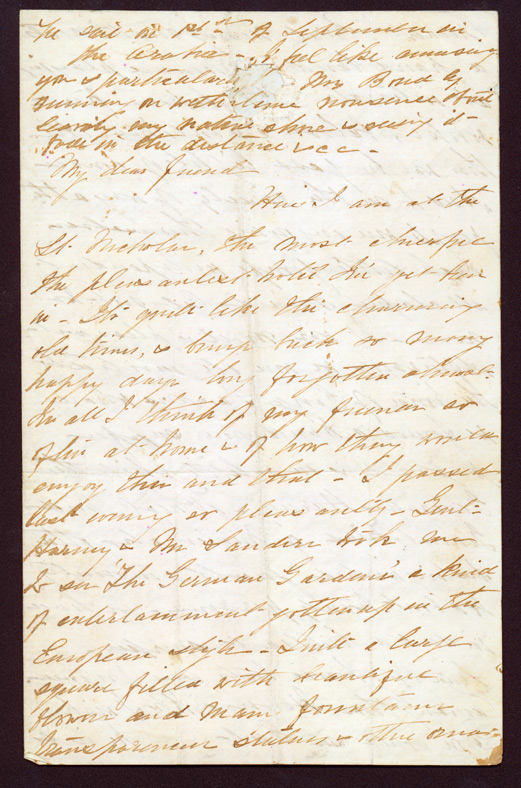 We sail on 1st of September in
the Arabia - I feel like amusing
you & particularly Mr Bond by
running on with some nonsence about
leaving my native shore & seeing it
fade in the distance &c c -
My dear friend
Here I am at the
St. Nicholas, the most
the pleasantest hotel I've yet been
in - It's quite like the charming
old times, & brings back so many
happy days long forgotten almost -
In all I think of my friends
at home & of how they would
enjoy this and that - I passed
last evening so pleasantly - Genl -
Harney & Mr Sanders took me
to see "The German Gardens" a kind
of entertainment gotten up in the
European style - Quite a large
square filled with beautiful
flowers and many fountains
transparencies statues & other orna-